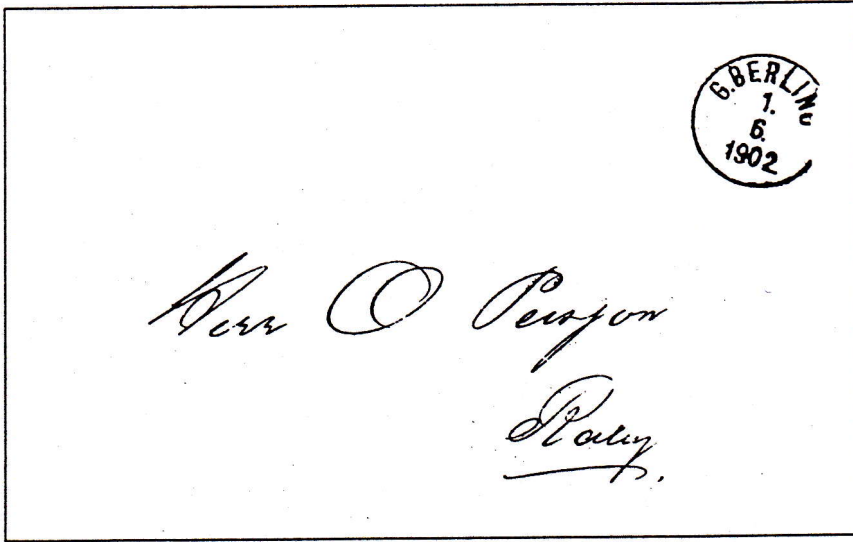 G.BERLING
1.
6.
1902
Herr O Persson